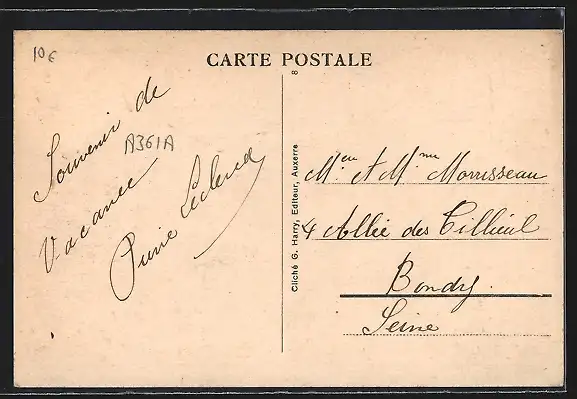 10€
CARTE POSTALE
8
Souvenir de
A361A
Vacance
Leclerc
Cliché G. Harry, Editeur, Auxerre
Mr et Mme Morisseau
4 Allée des Tillieul
Bondy.
Seine